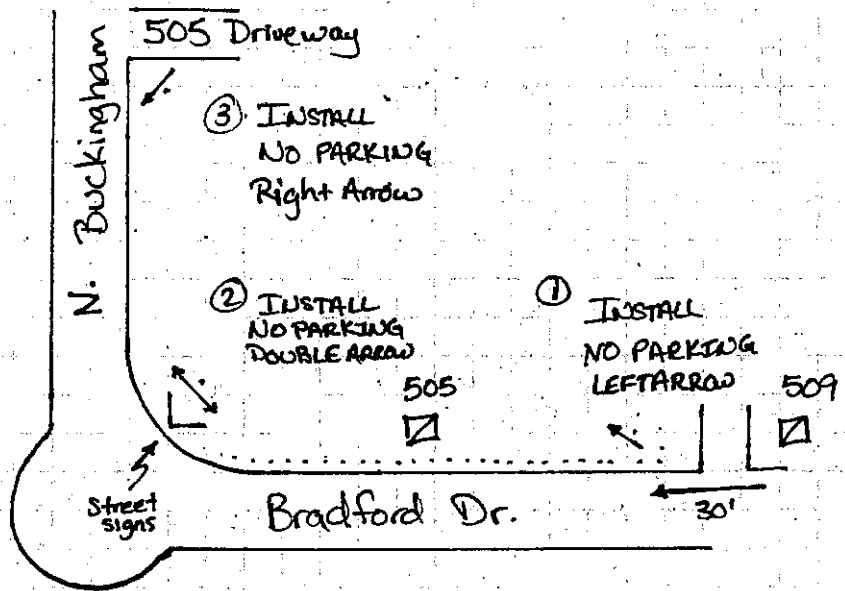 505 Driveway
N. Buckingham
③ INSTALL
NO PARKING
Right Arrow
② INSTALL
NO PARKING
DOUBLE ARROW
① INSTALL
NO PARKING
LEFT ARROW
505
509
Street
signs
Bradford Dr.
30'